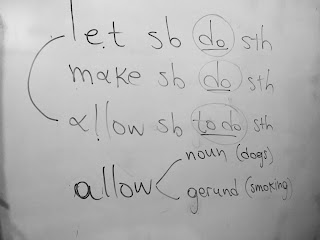 let sb do sth
make sb do sth
allow sb to do sth
noun (dogs)
allow
gerund (smoking)